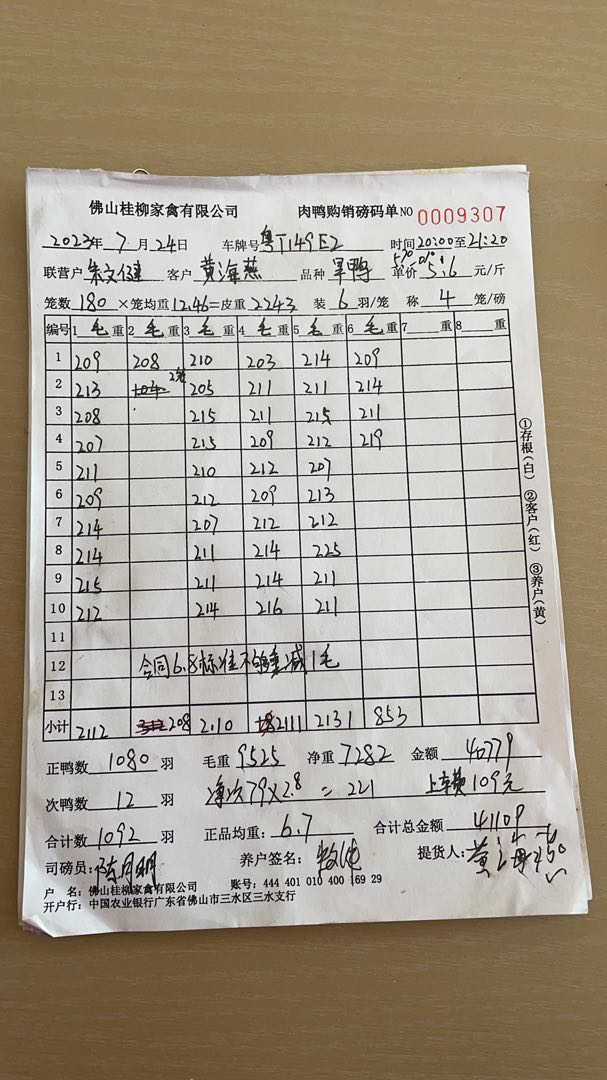 佛山桂柳家禽有限公司 肉鸭购销磅码单 NO 0009307
2023年 7 月 24日 车牌号 粤T149E2 时间 20:00 至 21:20
联营户 客户 黄海燕 品种 旱鸭 单价 5.6 元/斤
笼数 180 ×笼均重 12.46 =皮重 2243 装 6 羽/笼 称 4 笼/磅
编号 1 毛 重 2 毛 重 3 毛 重 4 毛 重 5 毛 重 6 毛 重 7 重 8 重
1 209 208 210 203 214 209
2 213 205 211 211 214
3 208 215 211 215 211
4 207 215 209 212 219
5 211 210 212 207
6 209 212 209 213
7 214 207 212 212
8 214 211 214 225
9 215 211 214 211
10 212 214 216 211
11
12 合同6.8标准不够重减1毛
13
小计 2112 208 2110 2111 2131 853
正鸭数 1080 羽 毛重 9525 净重 7282 金额 40779
次鸭数 12 羽 净次79×2.8 = 221 上车费109元
合计数 1092 羽 正品均重: 6.7 合计总金额 41109
司磅员: 陈月明 养户签名: 提货人:
户 名: 佛山桂柳家禽有限公司 账号: 444 401 010 400 169 29
开户行: 中国农业银行广东省佛山市三水区三水支行
①存根(白) ②客户(红) ③养户(黄)